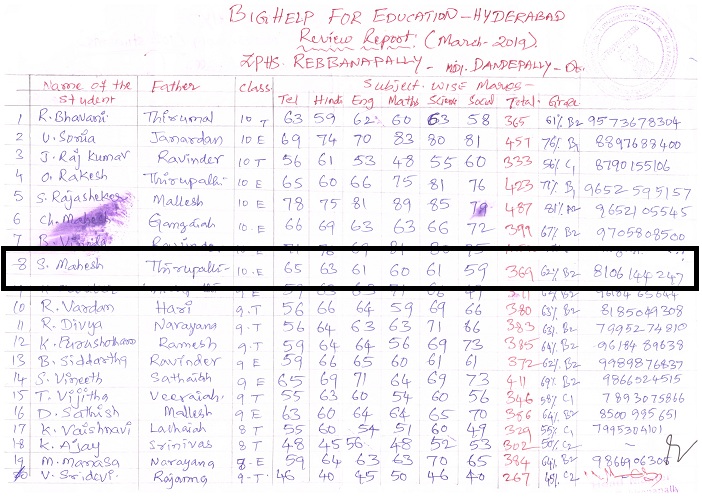 BIGHELP FOR EDUCATION - HYDERABAD
Review Report (March-2019)
ZPHS. REBBANAPALLY - Mdl. DANDEPALLY -
Name of the Student Father Class Subject wise Marks -
Tel Hindi Eng Maths Science Social Total Grade
1 R. Bhavani Thirumal 10 T 63 59 62 60 63 58 365 61% B2 9573678304
2 V. Sonia Janardan 10 E 69 74 70 83 80 81 457 76% B1 8897688400
3 J. Raj Kumar Ravinder 10 T 56 61 53 48 55 60 333 56% C1 8790155106
4 O. Rakesh Thirupathi 10 E 65 60 66 75 81 76 423 71% B1 9652595157
5 S. Rajashekar Mallesh 10 E 78 75 81 89 85 79 487 81% A2 9652105545
6 Ch. Mahesh Gangaiah 10 E 66 69 63 63 66 72 399 67% B2 9705808500
7
8 S. Mahesh Thirupathi - 10 E 65 63 61 60 61 59 369 62% B2 8106144247
10 R. Vardan Hari 9 T 56 66 64 59 69 66 380 63% B2 8185049308
11 R. Divya Narayana 9 T 56 64 63 63 71 86 383 63% B2 7995274810
12 K. Purushotham Ramesh 9 T 59 64 64 56 69 73 385 64% B2 9618489638
13 B. Siddartha Ravinder 9 E 59 66 65 60 61 61 372 62% B2 9989876837
14 S. Vineeth Sathaiah 9 E 65 69 71 64 69 73 411 69% B2 9866024515
15 T. Vijitha Veeraiah 9 T 55 63 60 54 60 56 346 58% C1 7893075866
16 D. Sathish Mallesh 9 E 63 60 64 64 65 70 386 64% B2 8500995651
17 K. Vaishnavi Lachaiah 8 T 55 60 54 51 60 49 329 55% C1 7995304101
18 K. Ajay Srinivas 8 T 48 45 56 48 52 53 302 50% C2 -
19 M. Manasa Narayana 8 E 59 64 63 63 70 65 384 64% B2 9866906308
20 V. Sridevi Rajanna 9 T 46 40 45 50 46 40 267 45% C2